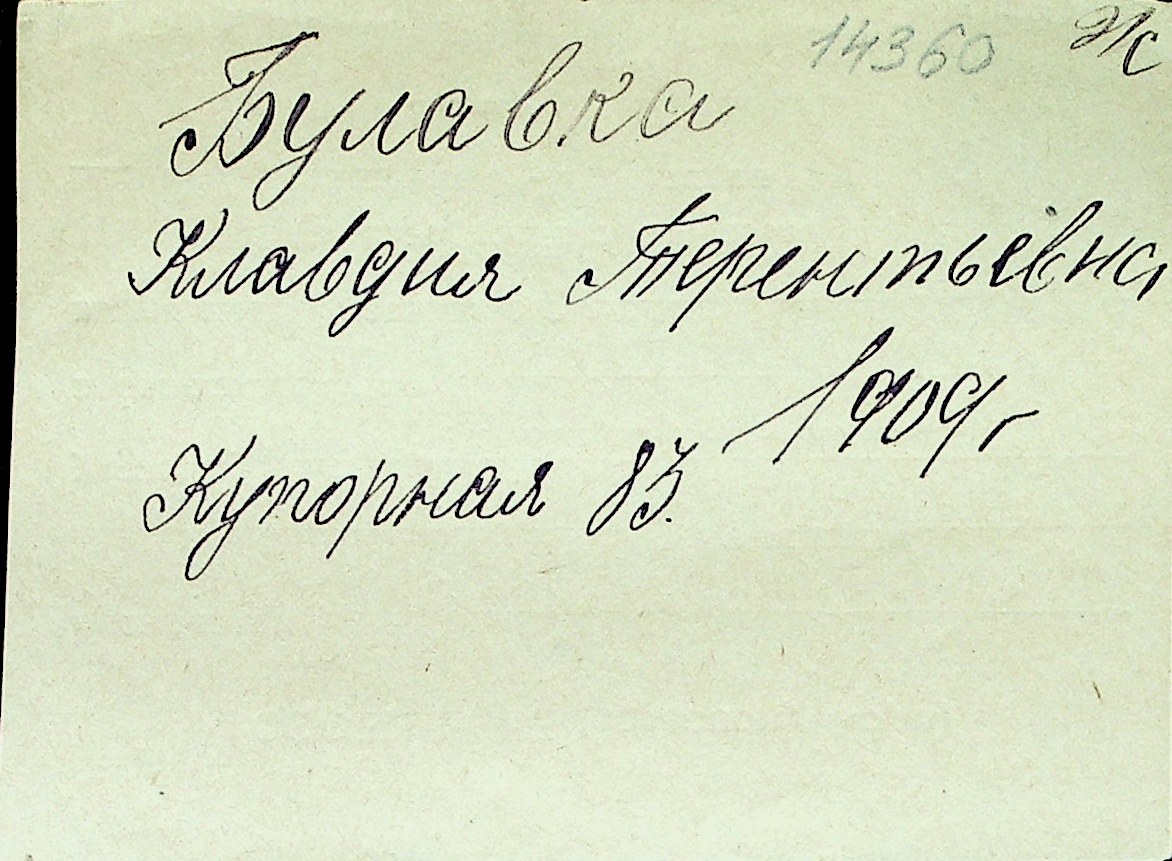 14360 Ж
Булавка
Клавдия Терентьевна
1909 г
Купорная 83.